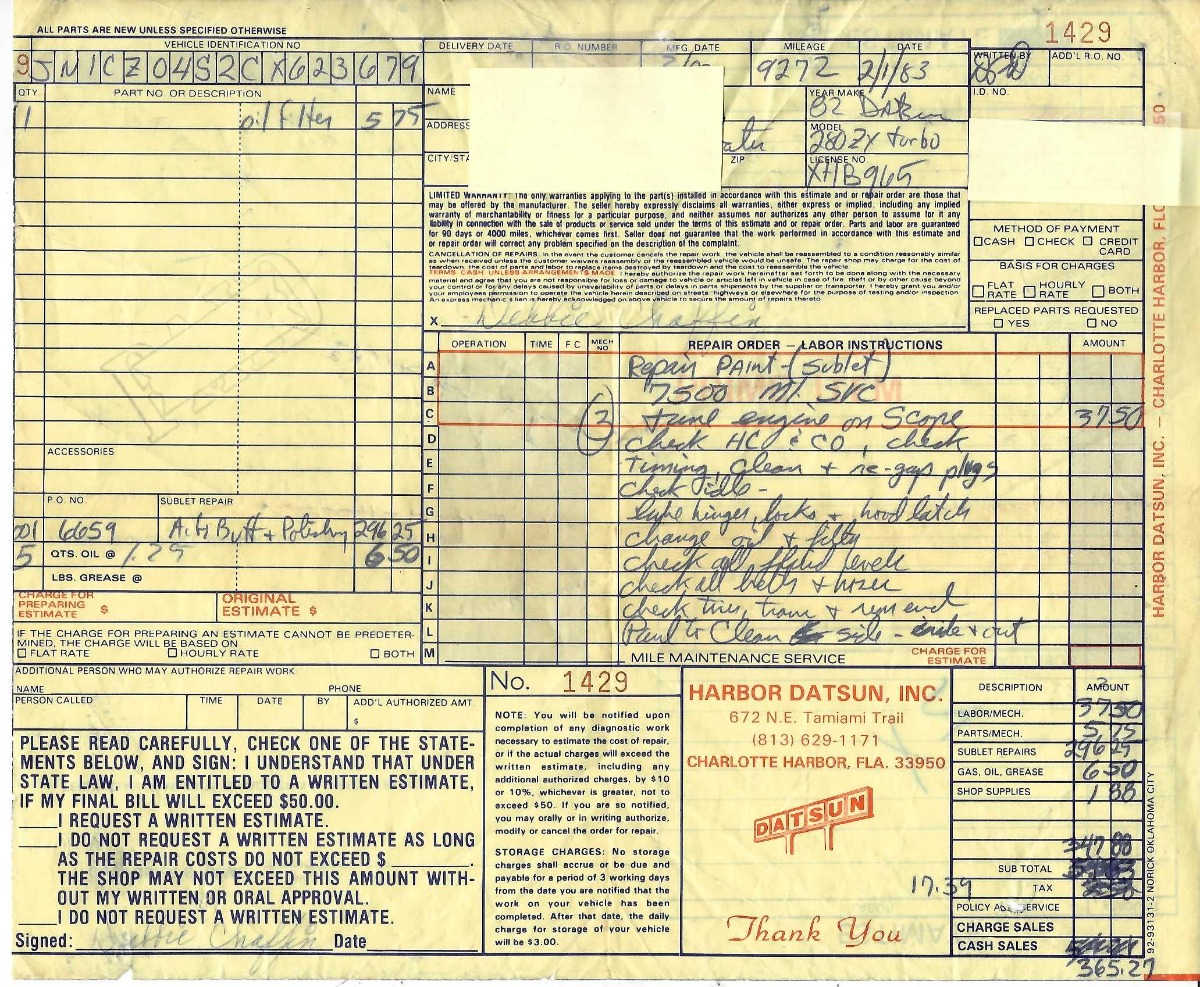 ALL PARTS ARE NEW UNLESS SPECIFIED OTHERWISE
1429
VEHICLE IDENTIFICATION NO
JN1CZ04S2CX623679
QTY PART NO. OR DESCRIPTION
1 oil filter 5 75
ACCESSORIES
P.O. NO. SUBLET REPAIR
001 6659 Buff + Polishing 296 25
5 QTS. OIL @ 1.29 6 50
LBS. GREASE @
CHARGE FOR PREPARING ESTIMATE $
ORIGINAL ESTIMATE $
IF THE CHARGE FOR PREPARING AN ESTIMATE CANNOT BE PREDETER-
MINED, THE CHARGE WILL BE BASED ON
FLAT RATE HOURLY RATE BOTH
ADDITIONAL PERSON WHO MAY AUTHORIZE REPAIR WORK:
NAME PHONE
PERSON CALLED TIME DATE BY ADD'L AUTHORIZED AMT.
$
PLEASE READ CAREFULLY, CHECK ONE OF THE STATE-
MENTS BELOW, AND SIGN: I UNDERSTAND THAT UNDER
STATE LAW, I AM ENTITLED TO A WRITTEN ESTIMATE,
IF MY FINAL BILL WILL EXCEED $50.00.
___I REQUEST A WRITTEN ESTIMATE.
___I DO NOT REQUEST A WRITTEN ESTIMATE AS LONG
AS THE REPAIR COSTS DO NOT EXCEED $ ________.
THE SHOP MAY NOT EXCEED THIS AMOUNT WITH-
OUT MY WRITTEN OR ORAL APPROVAL.
___I DO NOT REQUEST A WRITTEN ESTIMATE.
Signed: Debbie Chaffin Date
DELIVERY DATE R.O. NUMBER MFG. DATE MILEAGE DATE
9272 2/1/83
WRITTEN BY ADD'L R.O. NO.
I.D. NO.
NAME
ADDRESS
CITY/STA
ZIP
YEAR MAKE
82 Datsun
MODEL
280ZX turbo
LICENSE NO.
XHB965
LIMITED WARRANTY: The only warranties applying to the part(s) installed in accordance with this estimate and or repair order are those that
may be offered by the manufacturer. The seller hereby expressly disclaims all warranties, either express or implied, including any implied
warranty of merchantability or fitness for a particular purpose, and neither assumes nor authorizes any other person to assume for it any
liability in connection with the sale of products or service sold under the terms of this estimate and or repair order. Parts and labor are guaranteed
for 90 days or 4000 miles, whichever comes first. Seller does not guarantee that the work performed in accordance with this estimate and
or repair order will correct any problem specified on the description of the complaint.
CANCELLATION OF REPAIRS: In the event the customer cancels the repair work, the vehicle shall be reassembled to a condition reasonably similar
as when received unless the customer waives reassembly or the reassembled vehicle would be unsafe. The repair shop may charge for the cost of
teardown, the cost of parts and labor to replace items destroyed by teardown and the cost to reassemble the vehicle
TERMS CASH UNLESS ARRANGEMENTS MADE I hereby authorize the repair work hereinafter set forth to be done along with the necessary
material and agree that you are not responsible for loss or damage to vehicle or articles left in vehicle in case of fire, theft or by other cause beyond
your control or for any delays caused by unavailability of parts or delays in parts shipments by the supplier or transporter. I hereby grant you and/or
your employees permission to operate the vehicle herein described on streets, highways or elsewhere for the purpose of testing and/or inspection
An express mechanic's lien is hereby acknowledged on above vehicle to secure the amount of repairs thereto
X Debbie Chaffin
METHOD OF PAYMENT
CASH CHECK CREDIT CARD
BASIS FOR CHARGES
FLAT RATE HOURLY RATE BOTH
REPLACED PARTS REQUESTED
YES NO
OPERATION TIME F C MECH NO REPAIR ORDER — LABOR INSTRUCTIONS AMOUNT
A Repair Paint - (Sublet)
B 7500 MI. SVC
C (3) tune engine on Scope 37 50
D check HC & CO, check
E timing, clean + re-gap plugs
F check idle -
G Lube hinges, locks + hood latch
H change oil + filter
I check all fluid levels
J check all belts + hoses
K check tires, trans + rear end
L side - + out
M MILE MAINTENANCE SERVICE CHARGE FOR ESTIMATE
No. 1429
NOTE: You will be notified upon
completion of any diagnostic work
necessary to estimate the cost of repair,
or if the actual charges will exceed the
written estimate, including any
additional authorized charges, by $10
or 10%, whichever is greater, not to
exceed $50. If you are so notified,
you may orally or in writing authorize,
modify or cancel the order for repair.
STORAGE CHARGES: No storage
charges shall accrue or be due and
payable for a period of 3 working days
from the date you are notified that the
work on your vehicle has been
completed. After that date, the daily
charge for storage of your vehicle
will be $3.00.
HARBOR DATSUN, INC.
672 N.E. Tamiami Trail
(813) 629-1171
CHARLOTTE HARBOR, FLA. 33950
DATSUN
Thank You
DESCRIPTION AMOUNT
LABOR/MECH. 37 50
PARTS/MECH. 5 75
SUBLET REPAIRS 296 25
GAS, OIL, GREASE 6 50
SHOP SUPPLIES 1 88
347 88
SUB TOTAL
17.39 TAX
POLICY ADJ. SERVICE
CHARGE SALES
CASH SALES
365.27
HARBOR DATSUN, INC. — CHARLOTTE HARBOR, FLO 50
92-93131-2 NORICK OKLAHOMA CITY